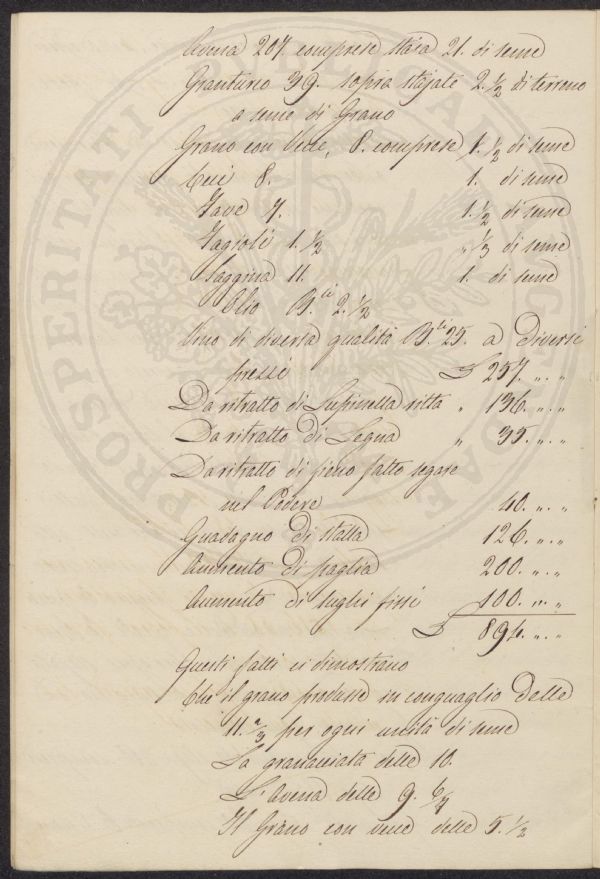 Avena 207. comprese staia 21. di seme
Granturco 39. sopra stajate 2. 1/2 di terreno
a seme di Grano
Grano con Vecce, 8. comprese 1. 1/2 di seme
Ceci 8. 1. di seme
Fave 7. 1. 1/2 di seme
Fagioli 1. 1/2 „ 1/3 di seme
Saggina 11. 1. di seme
Olio B.li 2. 1/2
Vino di diversa qualità B.li 25. a Diversi
prezzi £ 257. „. „
Da ritratto di Lupinella ritta „ 136. „. „
Da ritratto di Legna „ 35. „. „
Da ritratto di fieno fatto segare
nel Podere 40. „. „
Guadagno di stalla 126. „. „
Aumento di paglia 200. „. „
Aumento di sughi fissi 100. „. „
£ 894. „. „
Questi fatti ci dimostrano
Che il grano produsse in conguaglio delle
11. 2/3 per ogni unità di seme
La granacciata delle 10.
L'Avena delle 9. 6/7
Il Grano con vecce delle 5. 1/2
PROSPERITATI PUBLICAE AUGENDAE